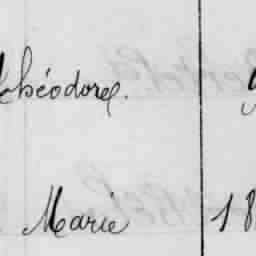 Théodore.
Marie 18